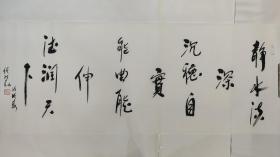 静水流
深
沉稳自
實
能曲能
伸
德润天
下